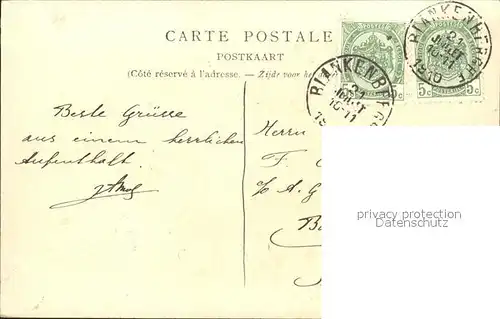 CARTE POSTALE
POSTKAART
(Côté réservé à l'adresse. – Zijde voor he
BLANKENBERGHE
21
10-11
1910
BLANKENBERG
21
10-11
19
5c 5c
5c 5c
Beste Grüsse
aus einem herrlichen
Aufenthalt.
Herrn
F.
A. G
privacy protection
Datenschutz